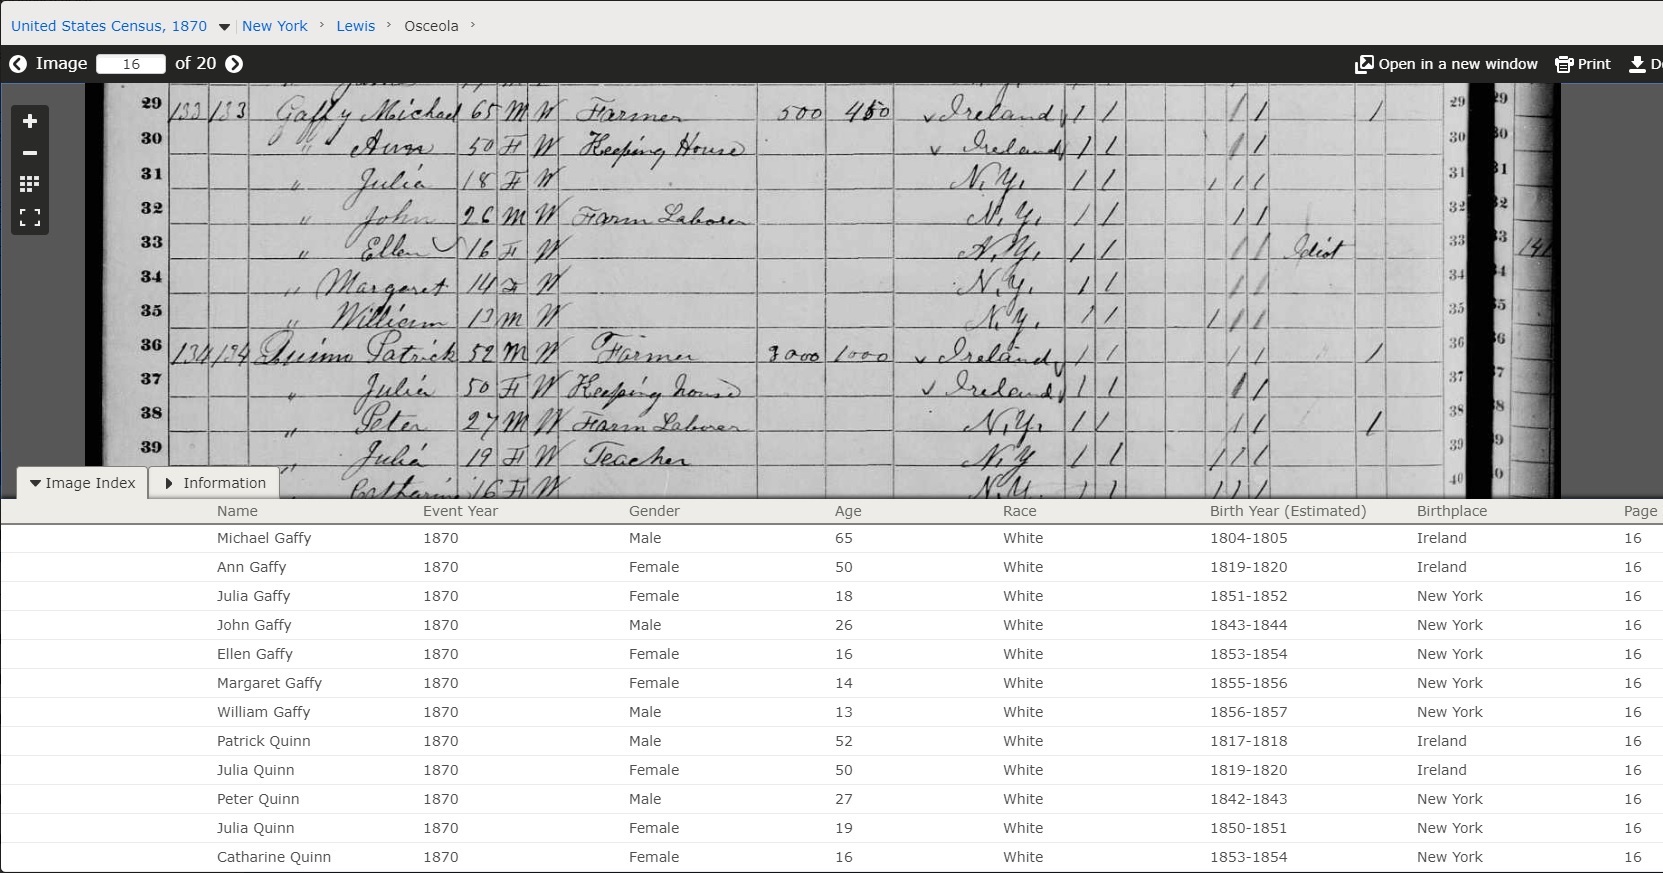 United States Census, 1870 New York › Lewis › Osceola ›
Image 16 of 20 Open in a new window Print
29 133 133 Gaffy Michael 65 M W Farmer 500 450 ✓ Ireland 1 1 / 1 1 29 29
30 " Ann 50 F W Keeping House ✓ Ireland 1 1 / 1 30 30
31 " Julia 18 F W N.Y. 1 1 1 1 1 31 31
32 " John 26 M W Farm Laborer N.Y. 1 1 1 1 32 32
33 " Ellen ✓ 16 F W N.Y. 1 1 1 1 Idiot 33 33 141
34 " Margaret 14 F W N.Y. 1 1 1 1 34 34
35 " William 13 M W N.Y. 1 1 1 1 1 35 35
36 134 134 Quinn Patrick 52 M W Farmer 3000 1000 ✓ Ireland 1 1 1 1 1 36 36
37 " Julia 50 F W Keeping house ✓ Ireland 1 1 1 1 37 37
38 " Peter 27 M W Farm Laborer N.Y. 1 1 1 1 1 38 38
39 " Julia 19 F W Teacher N.Y 1 1 1 1 1 39 39
Catharine 16 F W N.Y. 1 1 1 1 1 40 40
Image Index Information
Name Event Year Gender Age Race Birth Year (Estimated) Birthplace Page
Michael Gaffy 1870 Male 65 White 1804-1805 Ireland 16
Ann Gaffy 1870 Female 50 White 1819-1820 Ireland 16
Julia Gaffy 1870 Female 18 White 1851-1852 New York 16
John Gaffy 1870 Male 26 White 1843-1844 New York 16
Ellen Gaffy 1870 Female 16 White 1853-1854 New York 16
Margaret Gaffy 1870 Female 14 White 1855-1856 New York 16
William Gaffy 1870 Male 13 White 1856-1857 New York 16
Patrick Quinn 1870 Male 52 White 1817-1818 Ireland 16
Julia Quinn 1870 Female 50 White 1819-1820 Ireland 16
Peter Quinn 1870 Male 27 White 1842-1843 New York 16
Julia Quinn 1870 Female 19 White 1850-1851 New York 16
Catharine Quinn 1870 Female 16 White 1853-1854 New York 16